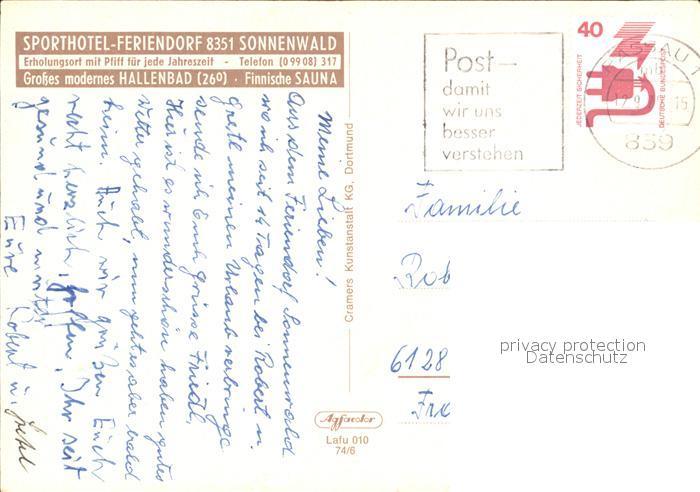 SPORTHOTEL-FERIENDORF 8351 SONNENWALD
Erholungsort mit Pfiff für jede Jahreszeit - Telefon (0 99 08) 317
Großes modernes HALLENBAD (26º) · Finnische SAUNA
Meine Lieben!
Aus dem Feriendorf Sonnenwald
wo ich seit 14 Tagen bei Robert u.
Gretl meinen Urlaub verbringe
sende ich Euch Grüsse Friedl.
Hier ist es wunderschön haben gutes
Wetter gehabt, nun geht es aber bald
heim. Auch wir grüßen Euch
recht herzlich, hoffen, Ihr seit
gesund und munter
Eure Robert u. Gretl
Cramers Kunstanstalt KG., Dortmund
Agfacolor
Lafu 010
74/6
Post—
damit
wir uns
besser
verstehen
40
JEDERZEIT SICHERHEIT
DEUTSCHE BUNDESPOST
PASSAU 1
839
Familie
Rob
6128
privacy protection
Datenschutz